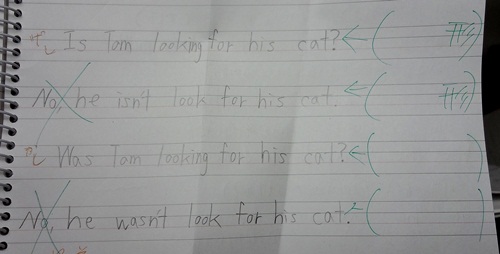 Is Tom looking for his cat? ← ( )
No, he isn't look for his cat. ← ( )
Was Tom looking for his cat? ← ( )
No, he wasn't look for his cat. ← ( )